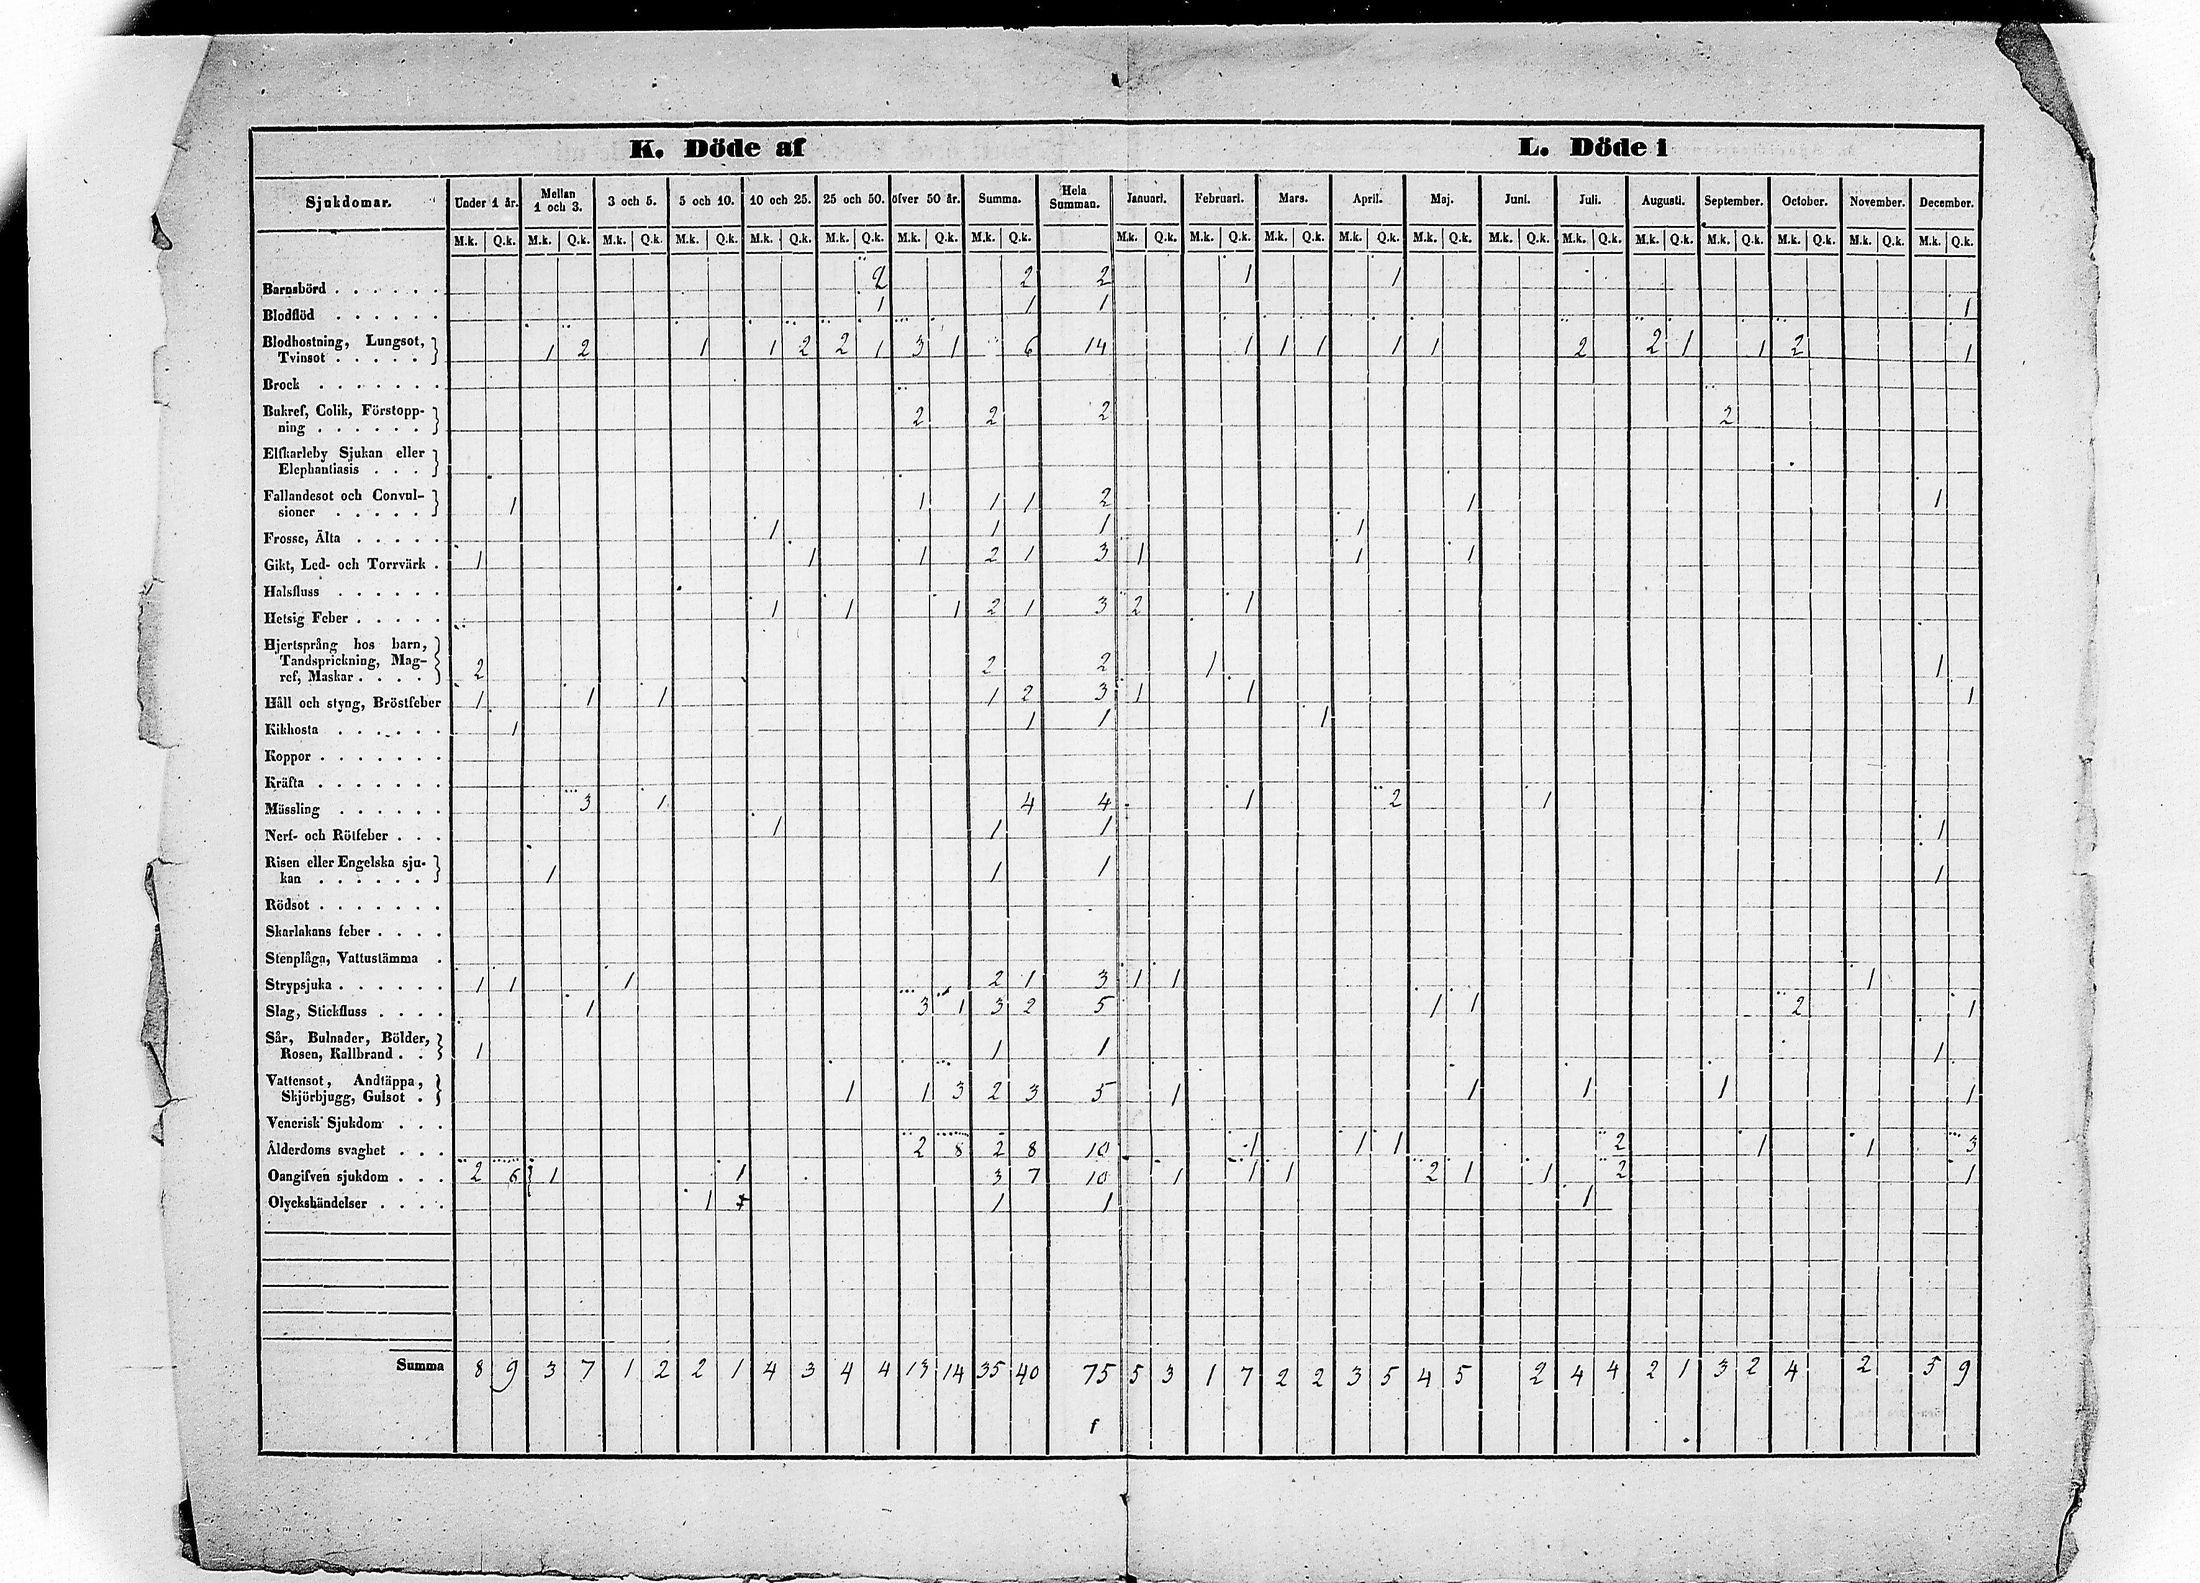 K. Döde af L. Döde i
Sjukdomar. Under 1 år. Mellan 1 och 3. 3 och 5. 5 och 10. 10 och 25. 25 och 50. öfver 50 år. Summa. Hela Summan. Januari. Februari. Mars. April. Maj. Juni. Juli. Augusti. September. October. November. December.
M.k. Q.k. M.k. Q.k. M.k. Q.k. M.k. Q.k. M.k. Q.k. M.k. Q.k. M.k. Q.k. M.k. Q.k. M.k. Q.k. M.k. Q.k. M.k. Q.k. M.k. Q.k. M.k. Q.k. M.k. Q.k. M.k. Q.k. M.k. Q.k. M.k. Q.k. M.k. Q.k. M.k. Q.k. M.k. Q.k.
Barnsbörd . . . . . . 2 2 2 1 1
Blodflöd . . . . . . 1 1 1 1
Blodhostning, Lungsot,
Tvinsot . . . . . } 1 2 1 1 2 2 1 3 1 6 14 1 1 1 1 1 2 2 1 1 2 1
Brock . . . . . . .
Bukref, Colik, Förstopp-
ning . . . . . . } 2 2 2 2
Elfkarleby Sjukan eller
Elephantiasis . . . }
Fallandesot och Convul-
sioner . . . . . } 1 1 1 1 2 1 1
Frosse, Älta . . . . . 1 1 1 1
Gikt, Led- och Torrvärk . 1 1 1 2 1 3 1 1 1
Halsfluss . . . . . .
Hetsig Feber . . . . . 1 1 1 2 1 3 2 1
Hjertsprång hos barn,
Tandsprickning, Mag-
ref, Maskar . . . . } 2 2 2 1 1
Håll och styng, Bröstfeber 1 1 1 1 2 3 1 1 1
Kikhosta . . . . . . 1 1 1 1
Koppor . . . . . . .
Kräfta . . . . . . .
Mässling . . . . . . 3 1 4 4 1 2 1
Nerf- och Rötfeber . . . 1 1 1 1
Risen eller Engelska sju-
kan . . . . . . } 1 1 1 1
Rödsot . . . . . . .
Skarlakans feber . . . .
Stenplåga, Vattustämma .
Strypsjuka . . . . . . 1 1 1 2 1 3 1 1 1
Slag, Stickfluss . . . . 1 3 1 3 2 5 1 1 2 1
Sår, Bulnader, Bölder,
Rosen, Kallbrand . . } 1 1 1 1
Vattensot, Andtäppa,
Skjörbjugg, Gulsot . } 1 1 3 2 3 5 1 1 1 1 1
Venerisk Sjukdom . . .
Ålderdoms svaghet . . . 2 8 2 8 10 1 1 1 2 1 1 3
Oangifven sjukdom . . . 2 6 1 1 3 7 10 1 1 1 2 1 1 2 1
Olyckshändelser . . . . 1 1 1 1
Summa 8 9 3 7 1 2 2 1 4 3 4 4 13 14 35 40 75 5 3 1 7 2 2 3 5 4 5 2 4 4 2 1 3 2 4 2 5 9